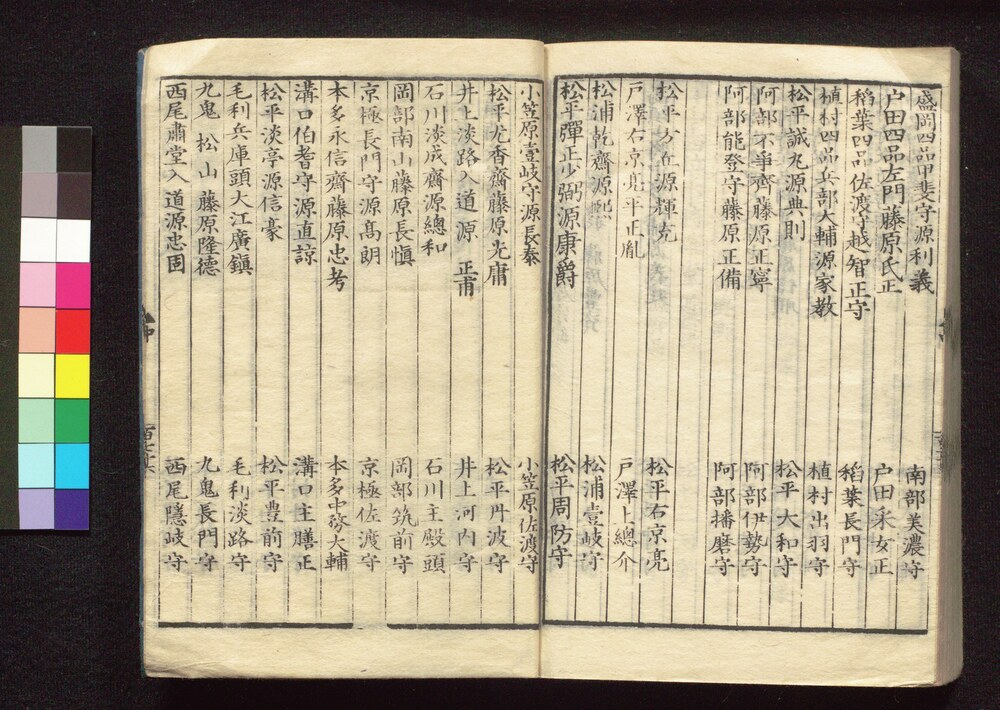 盛岡四品甲斐守源利義 南部美濃守
户田四品左門藤原氏正 户田采女正
稻葉四品佐渡守越智正守 稻葉長門守
植村四品兵部大輔源家教 植村出羽守
松平誠丸源典則 松平大和守
阿部不爭齋藤原正寧 阿部伊勢守
阿部能登守藤原正備 阿部播磨守
松平右京源輝充 松平右京亮
戸澤右京亮平正胤 戸澤上總介
松浦乾齋源凞 松浦壹岐守
松平彈正少弼源康爵 松平周防守
小笠原壹岐守源長泰 小笠原佐渡守
松平尤香齋藤原光庸 松平丹波守
井上淡路入道源正甫 井上河内守
石川淡成齋源總和 石川主殿頭
岡部南山藤原長愼 岡部筑前守
京極長門守源髙朗 京極佐渡守
本多永信齋藤原忠考 本多中務大輔
溝口伯耆守源直諒 溝口主膳正
松平淡亭源信豪 松平豊前守
毛利兵庫頭大江廣鎮 毛利淡路守
九鬼松山藤原隆德 九鬼長門守
西尾肅堂入道源忠固 西尾隱岐守